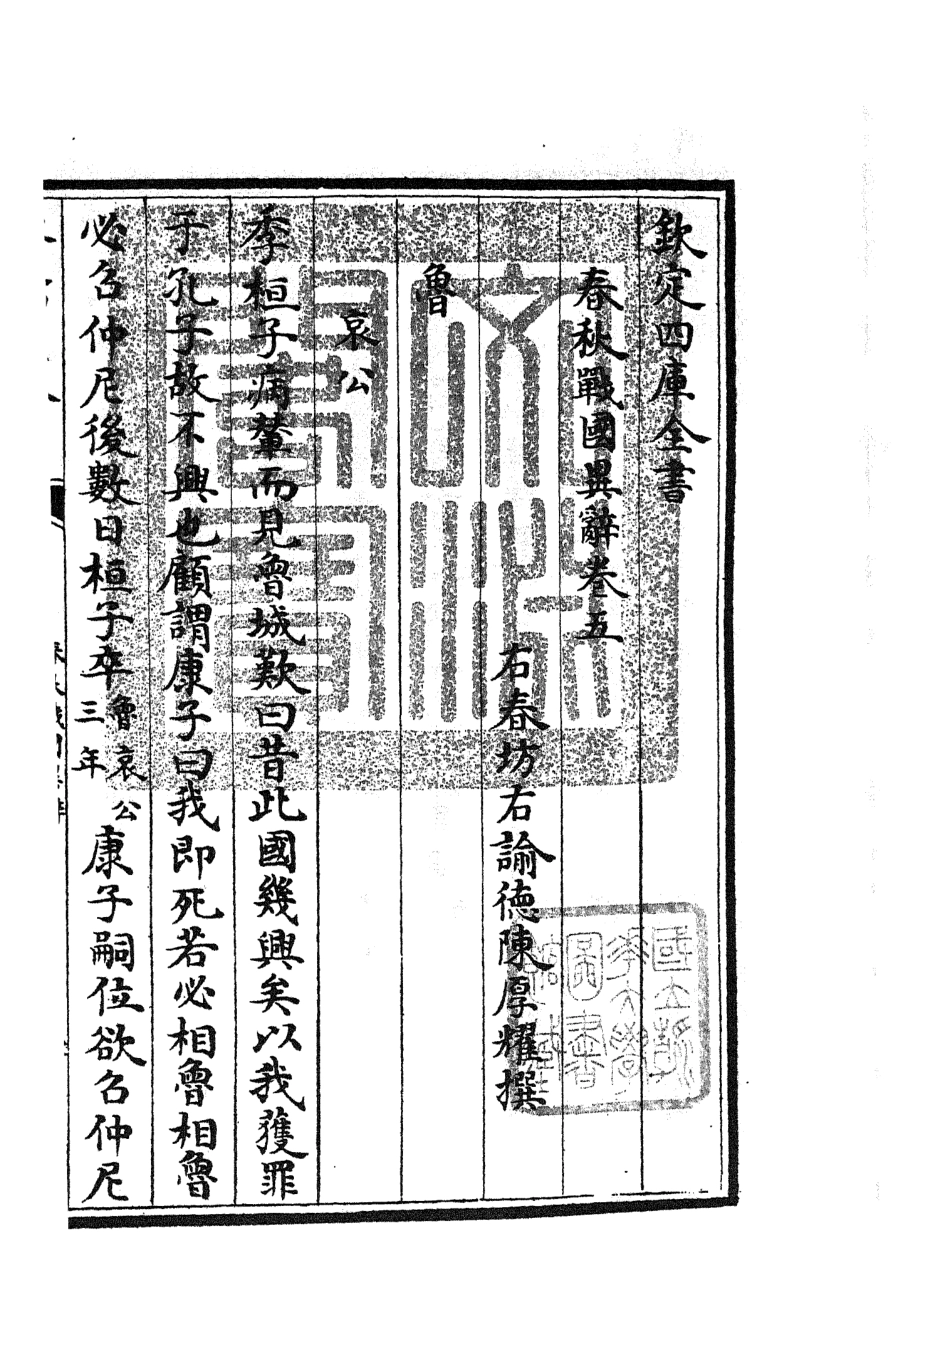 欽定四庫全書
春秋戰國異辭卷五
右春坊右諭德陳厚耀撰
魯
哀公
季桓子病輦而見魯城歎曰昔此國幾興矣以我獲罪
于孔子故不興也顧謂康子曰我即死若必相魯相魯
必召仲尼後數日桓子卒魯哀公三年康子嗣位欲召仲尼